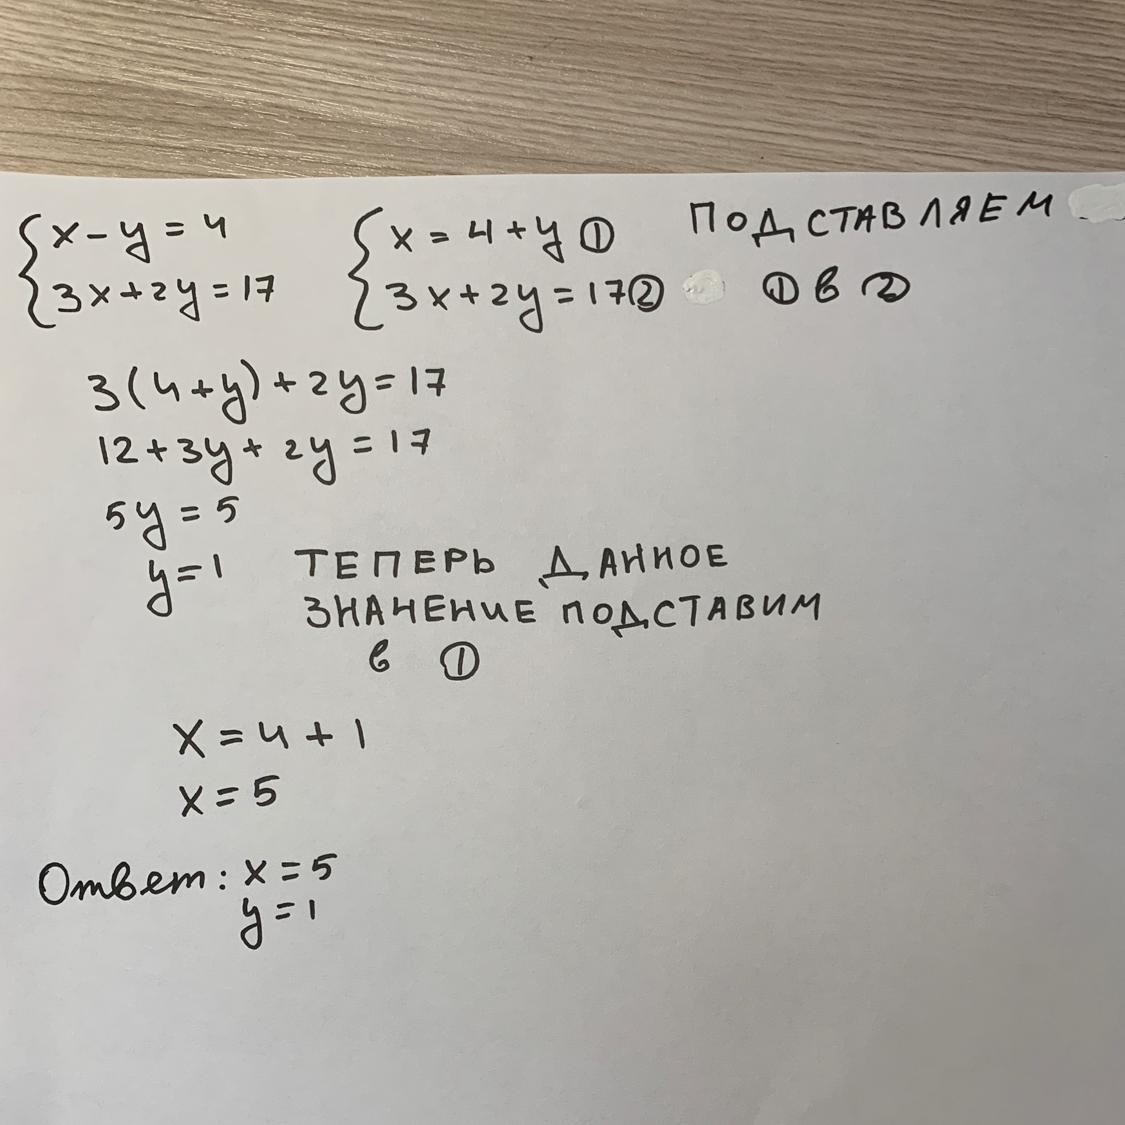 x - y = 4
3x + 2y = 17
x = 4 + y ①
3x + 2y = 17 ②
ПОДСТАВЛЯЕМ
① в ②
3(4 + y) + 2y = 17
12 + 3y + 2y = 17
5y = 5
y = 1
ТЕПЕРЬ ДАННОЕ
ЗНАЧЕНИЕ ПОДСТАВИМ
в ①
x = 4 + 1
x = 5
Ответ: x = 5
y = 1